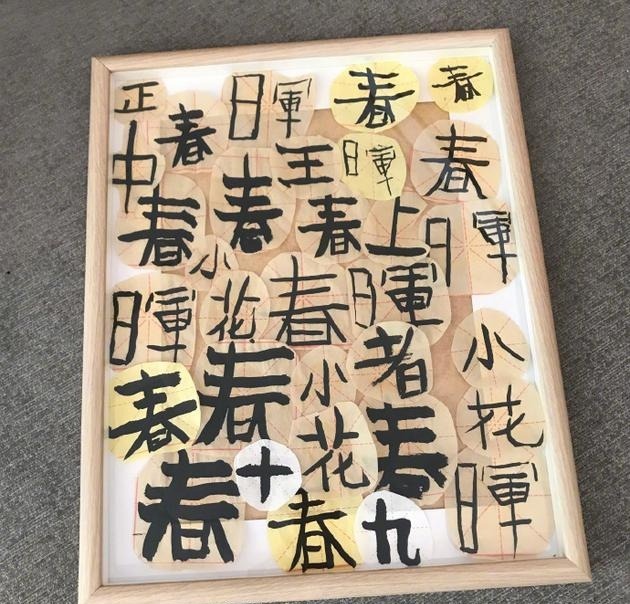 正 日軍 春 春
中 春 王 日軍 春
春 春 春 上 日軍
小
暉 花 春 暉 小
春 春 小 者 花
春 十 花 春 暉
春 九